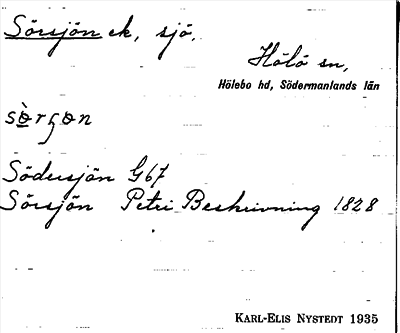 Sörsjön ek, sjö,
Hölö sn,
Hölebo hd, Södermanlands län
Södersjön G67
Sörsjön Petri Beskrivning 1828
KARL-ELIS NYSTEDT 1935